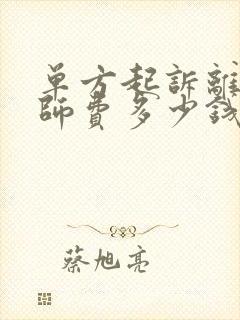 单方起訴離
師費多少錢
蔡旭亮